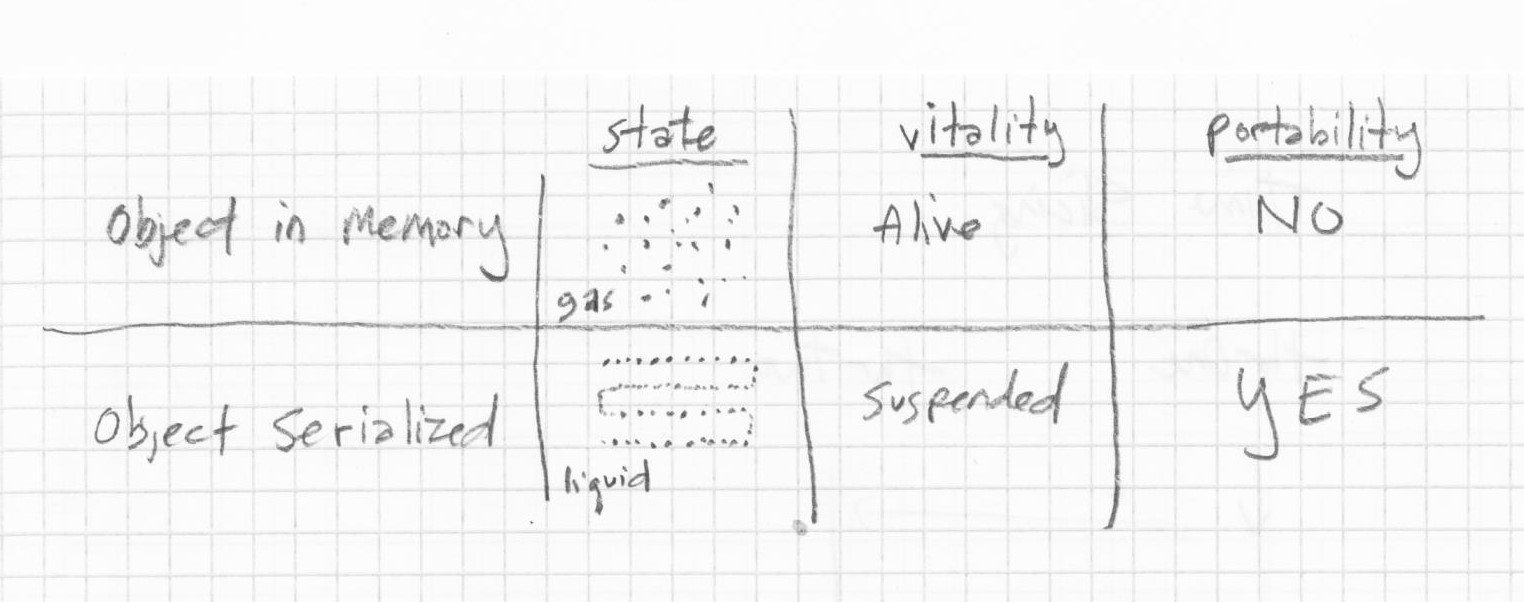 state vitality portability
Object in Memory gas Alive NO
Object Serialized liquid Suspended YES